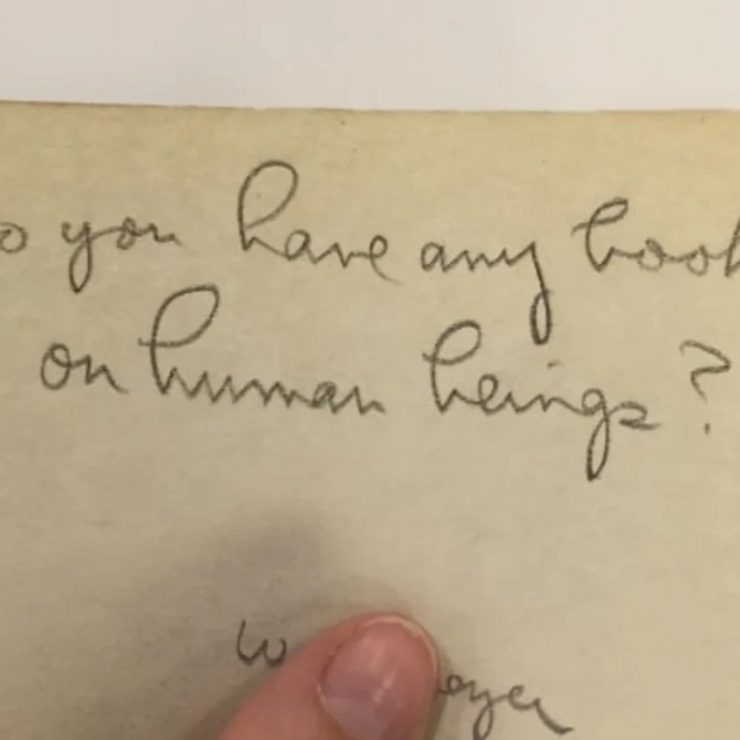 o you have any book
on human beings?